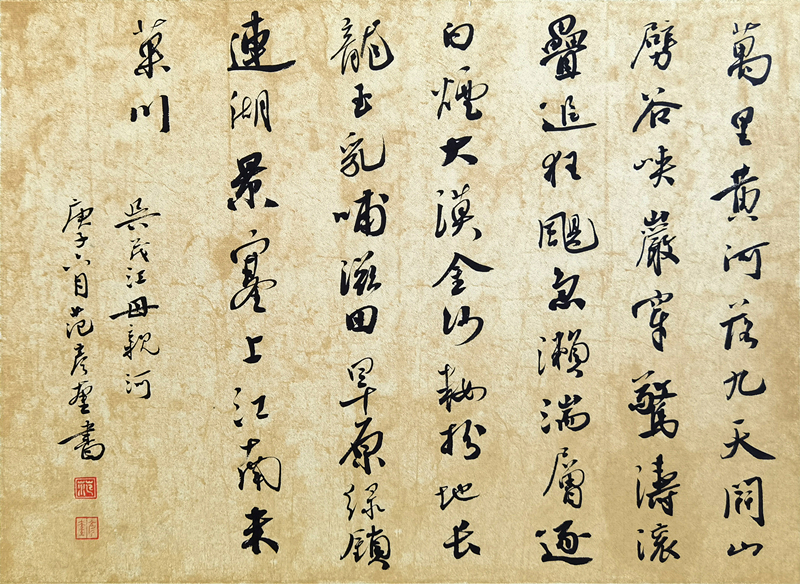 萬里黄河落九天闢山
劈谷峽巖穿驚濤滚
疊追狂颶急瀨湍層逐
白煙大漠金沙敷粉地长
龍玉乳哺滋田旱原绿鎖
連湖景塞上江南来
菓川
吳茂江母親河
庚子六月范彦奎書